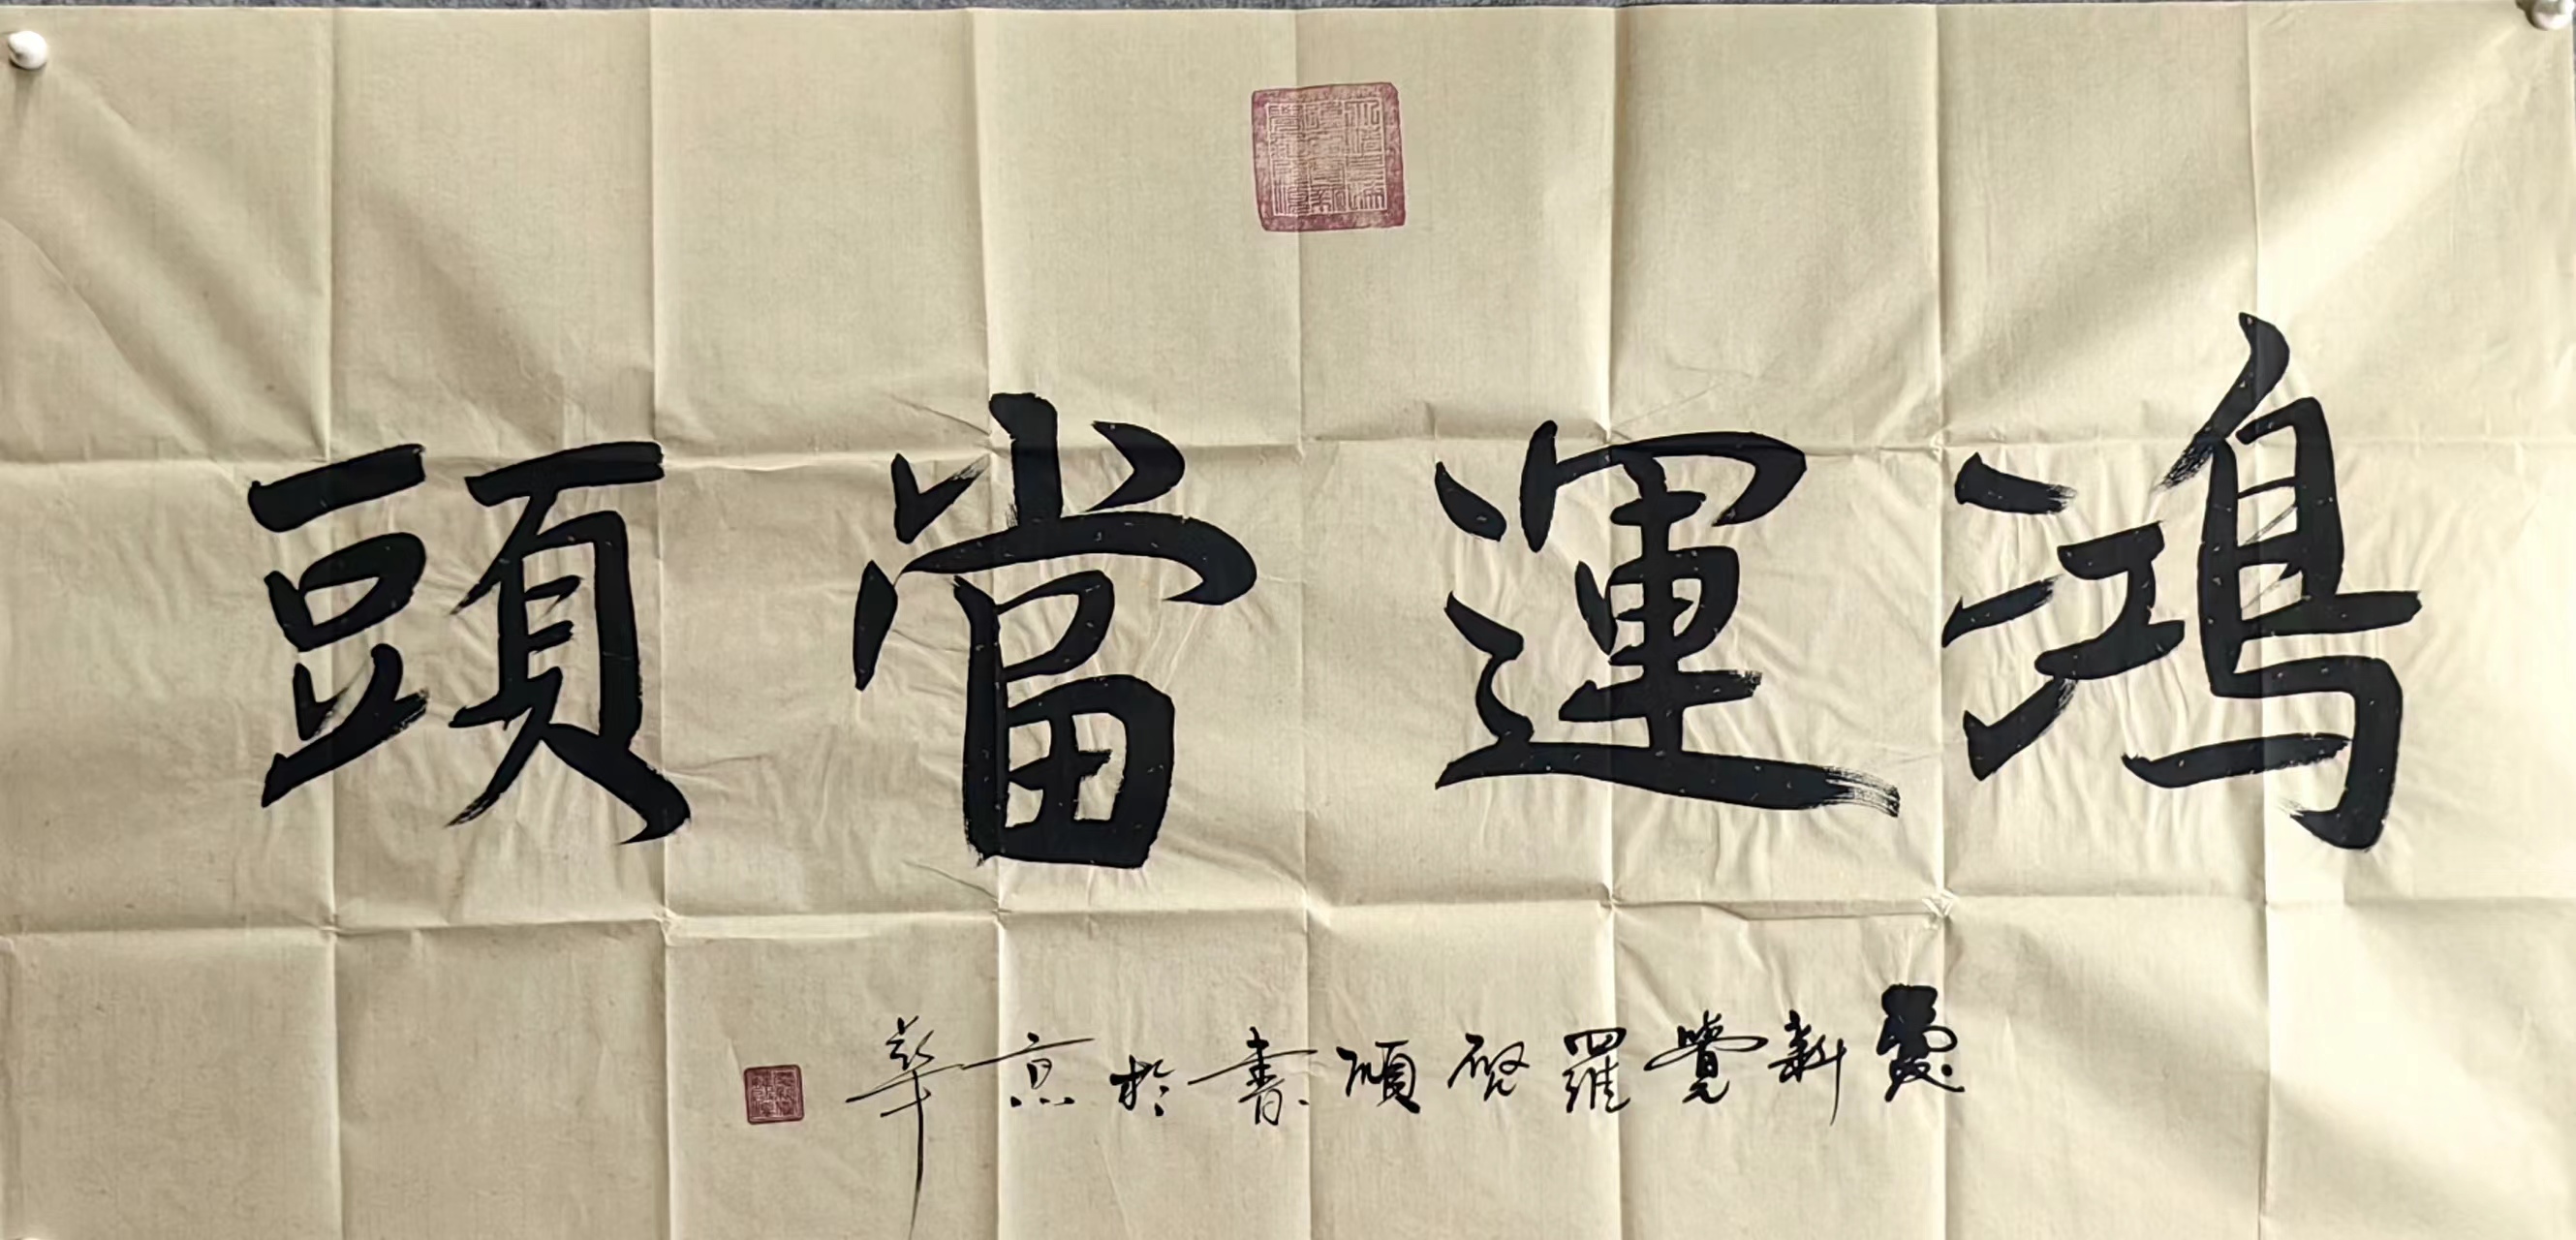 鴻運當頭
愛新覺羅啟順書於京華